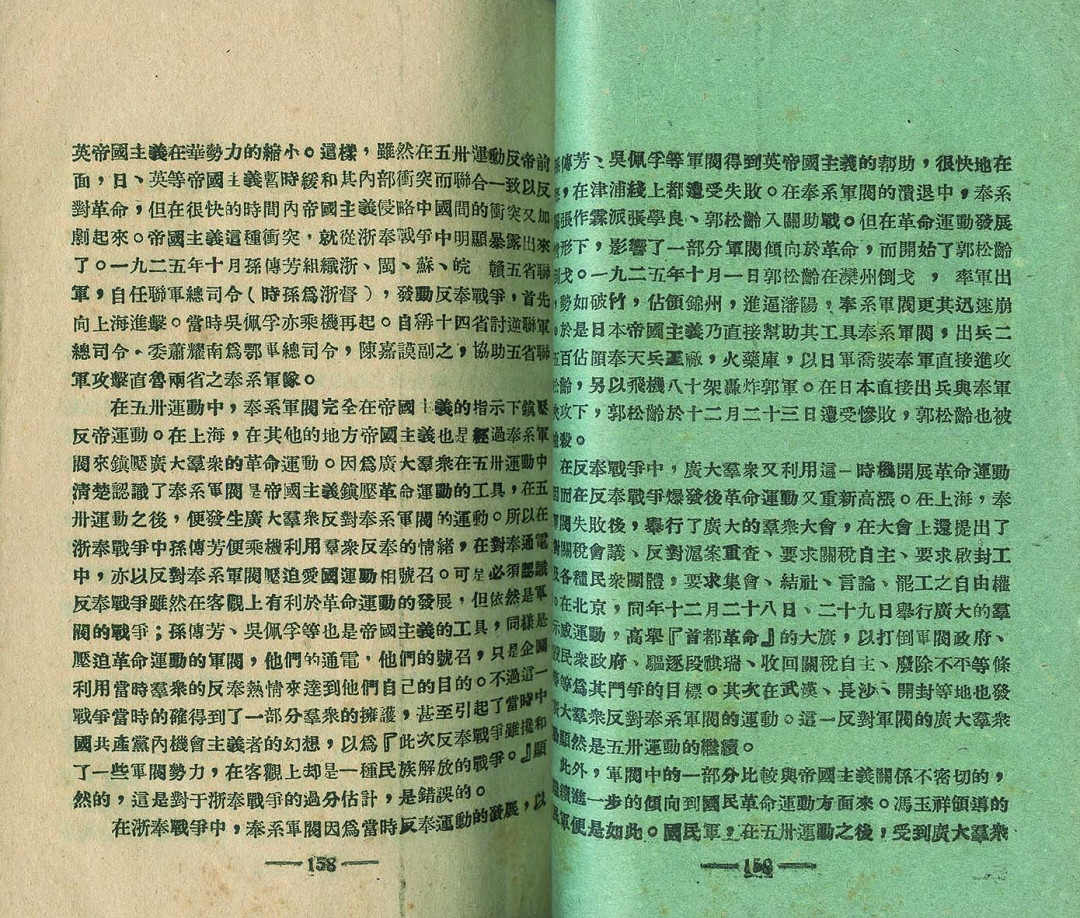 英帝國主義在華勢力的縮小。這樣，雖然在五卅運動反帝前
面，日、英等帝國主義暫時緩和其內部衝突而聯合一致以反
對革命，但在很快的時間內帝國主義侵略中國間的衝突又加
劇起來。帝國主義這種衝突，就從浙奉戰爭中明顯暴露出來
了。一九二五年十月孫傳芳組織浙、閩、蘇、皖 贛五省聯
軍，自任聯軍總司令（時孫爲浙督），發動反奉戰爭，首先
向上海進擊。當時吳佩孚亦乘機再起。自稱十四省討逆聯軍
總司令。委蕭耀南爲鄂軍總司令，陳嘉謨副之，協助五省聯
軍攻擊直魯兩省之奉系軍隊。
在五卅運動中，奉系軍閥完全在帝國主義的指示下鎮壓
反帝運動。在上海，在其他的地方帝國主義也是經過奉系軍
閥來鎮壓廣大羣衆的革命運動。因爲廣大羣衆在五卅運動中
清楚認識了奉系軍閥是帝國主義鎮壓革命運動的工具，在五
卅運動之後，便發生廣大羣衆反對奉系軍閥的運動。所以在
浙奉戰爭中孫傳芳便乘機利用羣衆反奉的情緒，在對奉通電
中，亦以反對奉系軍閥壓迫愛國運動相號召。可是必須認識
反奉戰爭雖然在客觀上有利於革命運動的發展，但依然是軍
閥的戰爭；孫傳芳、吳佩孚等也是帝國主義的工具，同樣是
壓迫革命運動的軍閥，他們的通電，他們的號召，只是企圖
利用當時羣衆的反奉熱情來達到他們自己的目的。不過這一
戰爭當時的確得到了一部分羣衆的擁護，甚至引起了當時中
國共產黨內機會主義者的幻想，以爲『此次反奉戰爭雖攙和
了一些軍閥勢力，在客觀上却是一種民族解放的戰爭。』顯
然的，這是對于浙奉戰爭的過分估計，是錯誤的。
在浙奉戰爭中，奉系軍閥因爲當時反奉運動的發展，以
158
傳芳、吳佩孚等軍閥得到英帝國主義的帮助，很快地在
，在津浦綫上都遭受失敗。在奉系軍閥的潰退中，奉系
張作霖派張學良、郭松齡入關助戰。但在革命運動發展
形下，影響了一部分軍閥傾向於革命，而開始了郭松齡
戈。一九二五年十月一日郭松齡在灤州倒戈 ，率軍出
，勢如破竹，佔領錦州，進逼瀋陽，奉系軍閥更其迅速崩
。於是日本帝國主義乃直接幫助其工具奉系軍閥，出兵二
百佔領奉天兵工廠，火藥庫，以日軍喬裝奉軍直接進攻
齡，另以飛機八十架轟炸郭軍。在日本直接出兵與奉軍
攻下，郭松齡於十二月二十三日遭受慘敗，郭松齡也被
殺。
在反奉戰爭中，廣大羣衆又利用這一時機開展革命運動
因而在反奉戰爭爆發後革命運動又重新高漲。在上海，奉
閥失敗後，舉行了廣大的羣衆大會，在大會上還提出了
對關稅會議、反對滬案重查、要求關稅自主、要求啟封工
及各種民衆團體，要求集會、結社、言論、罷工之自由權
。在北京，同年十二月二十八日、二十九日舉行廣大的羣
示威運動，高舉『首都革命』的大旗，以打倒軍閥政府、
民衆政府、驅逐段祺瑞、收回關稅自主、廢除不平等條
等爲其鬥爭的目標。其次在武漢、長沙、開封等地也發
大羣衆反對奉系軍閥的運動。這一反對軍閥的廣大羣衆
顯然是五卅運動的繼續。
此外，軍閥中的一部分比較與帝國主義關係不密切的，
續進一步的傾向到國民革命運動方面來。馮玉祥領導的
軍便是如此。國民軍，在五卅運動之後，受到廣大羣衆